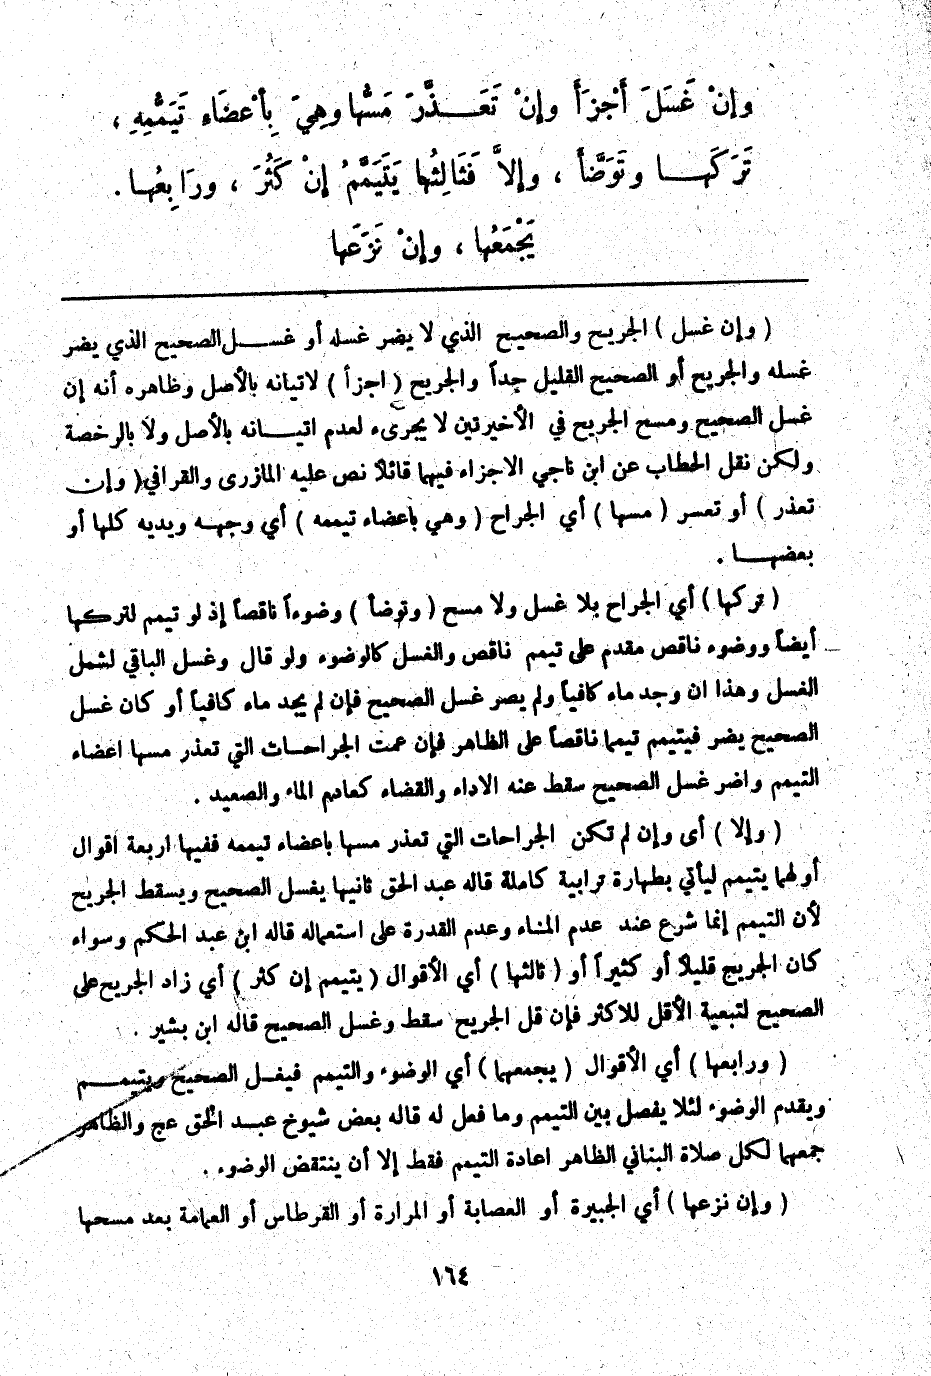 وإنْ غَسَلَ أَجْزَأَ وإنْ تَعَـــذَّرَ مَسُّها وهِيَ بِأعْضَاءِ تَيَمُّمِهِ ،
تَرَكَهـــا وتَوَضَّأَ ، وإلاَّ فَثَالِثُها يَتَيَمَّمُ إنْ كَثُرَ ، ورَابِعُهـا .
يَجْمَعُها ، وإنْ نَزَعَها
( وإن غسل ) الجريح والصحيح الذي لا يضر غسله أو غســـل الصحيح الذي يضر
غسله والجريح أو الصحيح القليل جداً والجريح ( اجزأ ) لاتيانه بالأصل وظاهره أنه إن
غسل الصحيح ومسح الجريح في الأخيرتين لا يجزىء لعدم اتيـــانه بالأصل ولا بالرخصة
ولكن نقل الحطاب عن ابن ناجي الاجزاء فيهما قائلاً نص عليه المازرى والقرافي ( وإن
تعذر ) أو تعسر ( مسها ) أي الجراح ( وهي باعضاء تيممه ) أي وجهـه ويديه كلها أو
بعضهـــا .
( تركها ) أي الجراح بلا غسل ولا مسح ( وتوضأ ) وضوءاً ناقصاً إذ لو تيمم لتركها
أيضاً ووضوء ناقص مقدم على تيمم ناقص والغسل كالوضوء ولو قال وغسل الباقي لشمل
الغسل وهذا ان وجد ماء كافياً ولم يضر غسل الصحيح فإن لم يجد ماء كافياً أو كان غسل
الصحيح يضر فيتيمم تيمما ناقصاً على الظاهر فإن عمت الجراحـات التي تعذر مسها اعضاء
التيمم واضر غسل الصحيح سقط عنه الاداء والقضاء كعادم الماء والصعيد .
( وإلا ) أى وإن لم تكن الجراحات التي تعذر مسها باعضاء تيممه ففيها اربعة اقوال
أولها يتيمم ليأتي بطهارة ترابية كاملة قاله عبد الحق ثانيها يغسل الصحيح ويسقط الجريح
لأن التيمم إنما شرع عند عدم المـاء وعدم القدرة على استعماله قاله ابن عبد الحكم وسواء
كان الجريح قليلاً أو كثيراً أو ( ثالثها ) أي الأقوال ( يتيمم إن كثر ) أي زاد الجريح على
الصحيح لتبعية الأقل للاكثر فإن قل الجريح سقط وغسل الصحيح قاله ابن بشير .
( ورابعها ) أي الأقوال ( يجمعهما ) أي الوضوء والتيمم فيغسل الصحيح ويتيمـــم
ويقدم الوضوء لئلا يفصل بين التيمم وما فعل له قاله بعض شيوخ عبـد الحق عج والظاهر
جمعهما لكل صلاة البناني الظاهر اعادة التيمم فقط إلا أن ينتقض الوضوء .
( وإن نزعها ) أي الجبيرة أو العصابة أو المرارة أو القرطاس أو العمامة بعد مسحها
١٦٤